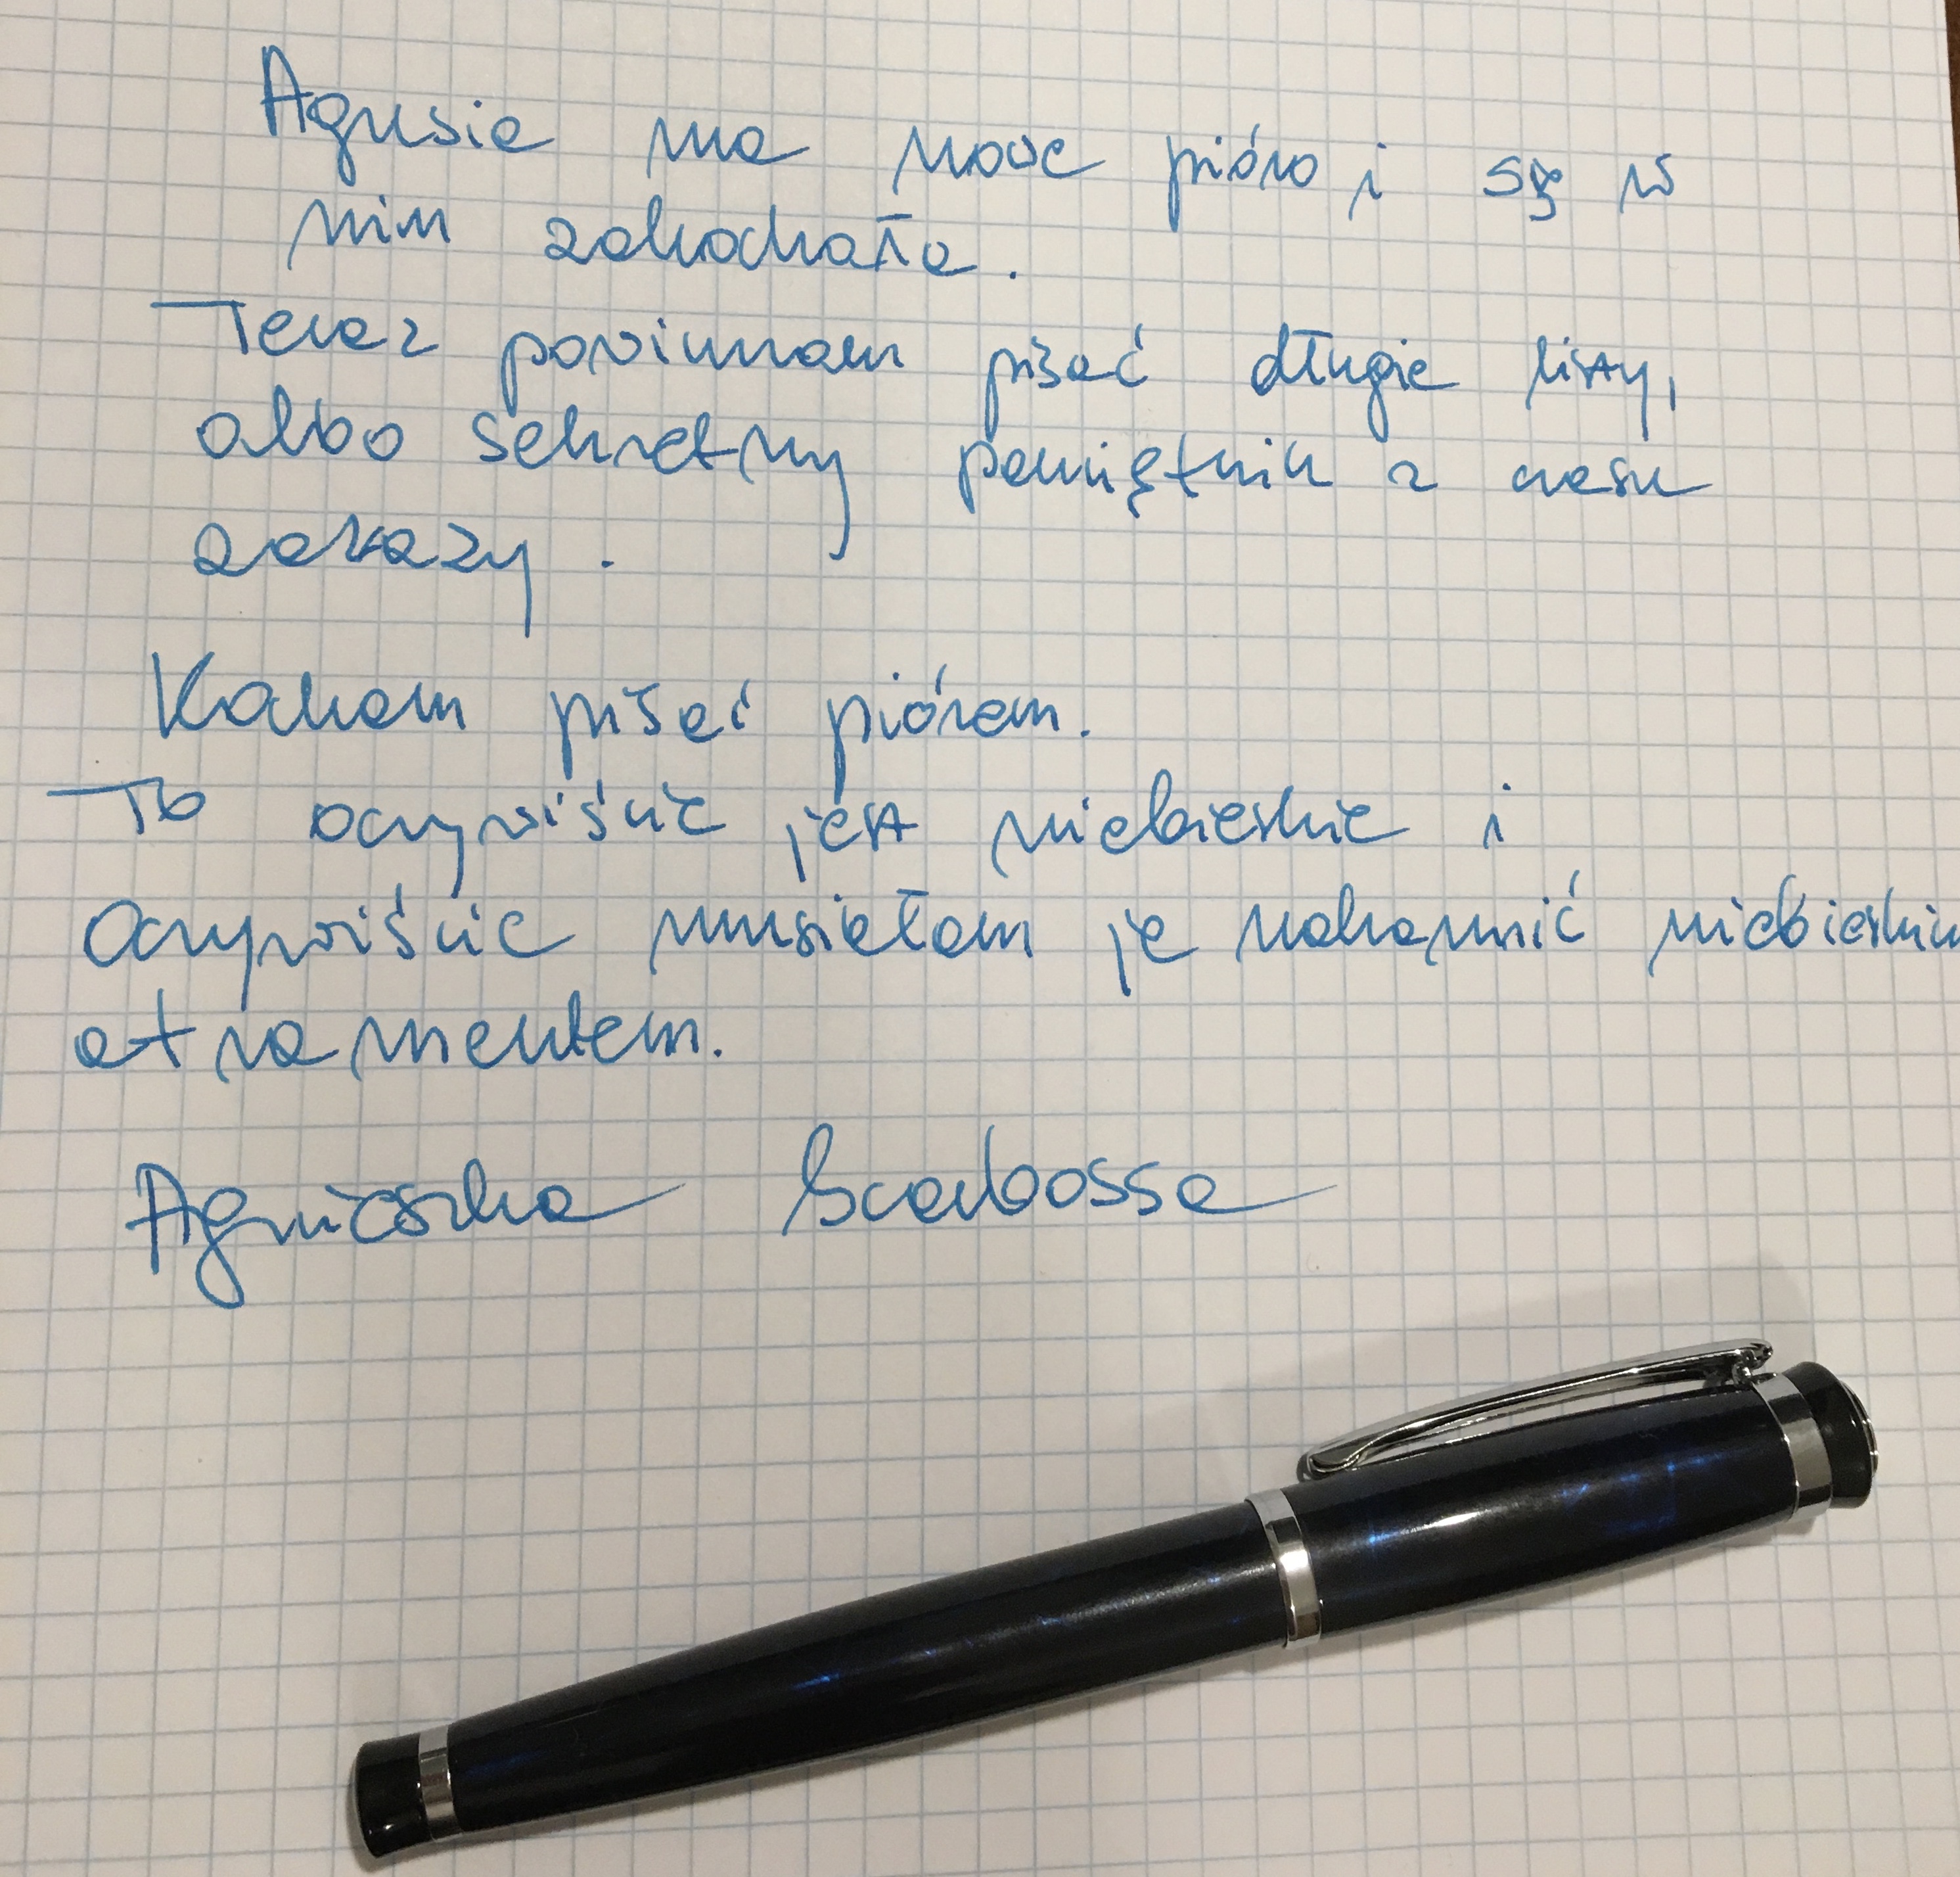 Agusia ma nowe pióro i się w
nim zakochała.
Teraz powinnam pisać długie listy,
albo sekretny pamiętnik z czasu
zarazy.
Kocham pisać piórem.
To oczywiście jest niebieskie i
Oczywiście musiałam je nakarmić niebieskim
atramentem.
Agnieszka Scabossa